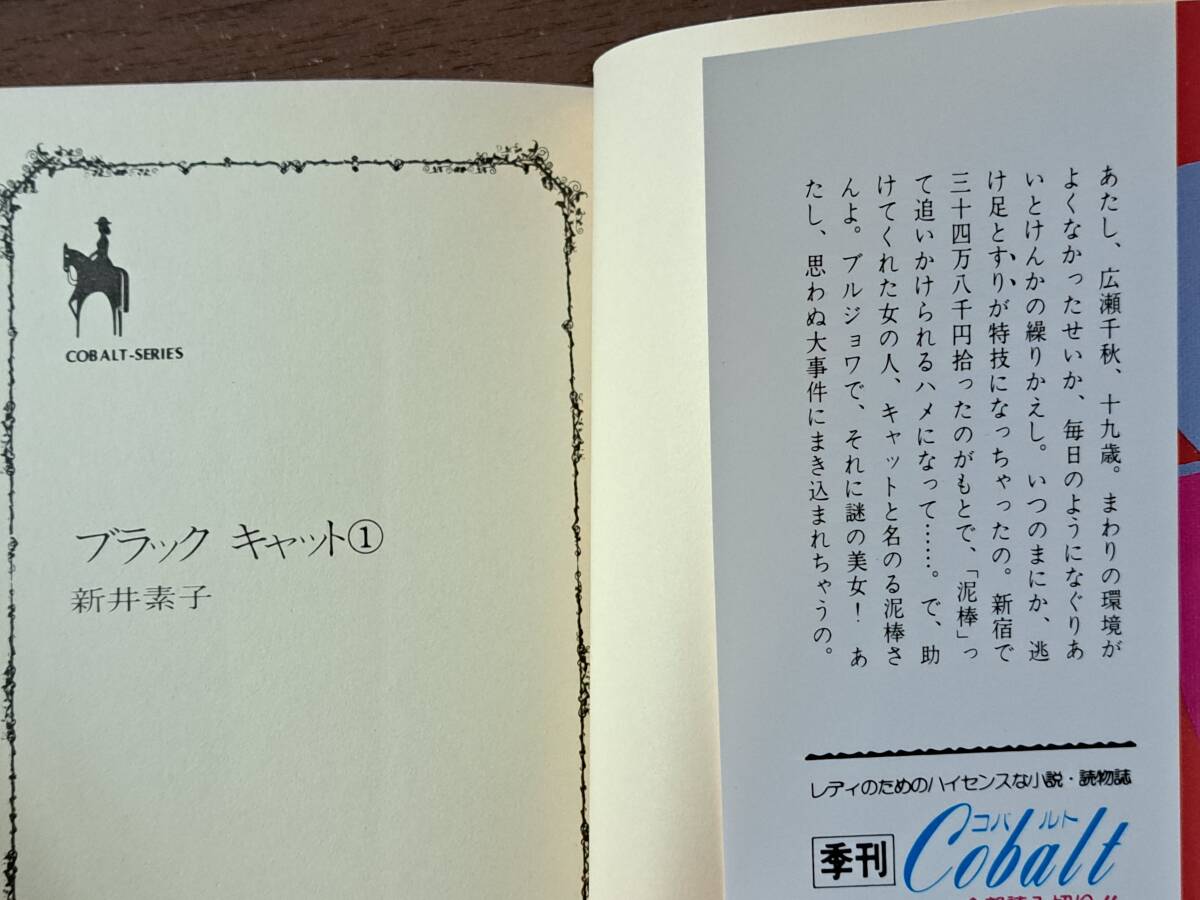 COBALT-SERIES
ブラック キャット①
新井素子
あたし、広瀬千秋、十九歳。まわりの環境が
よくなかったせいか、毎日のようになぐりあ
いとけんかの繰りかえし。いつのまにか、逃
け足とすりが特技になっちゃったの。新宿で
三十四万八千円拾ったのがもとで、「泥棒」っ
て追いかけられるハメになって……。で、助
けてくれた女の人、キャットと名のる泥棒さ
んよ。ブルジョワで、それに謎の美女！ あ
たし、思わぬ大事件にまき込まれちゃうの。
レディのためのハイセンスな小説・読物誌
季刊
コバルト
Cobalt